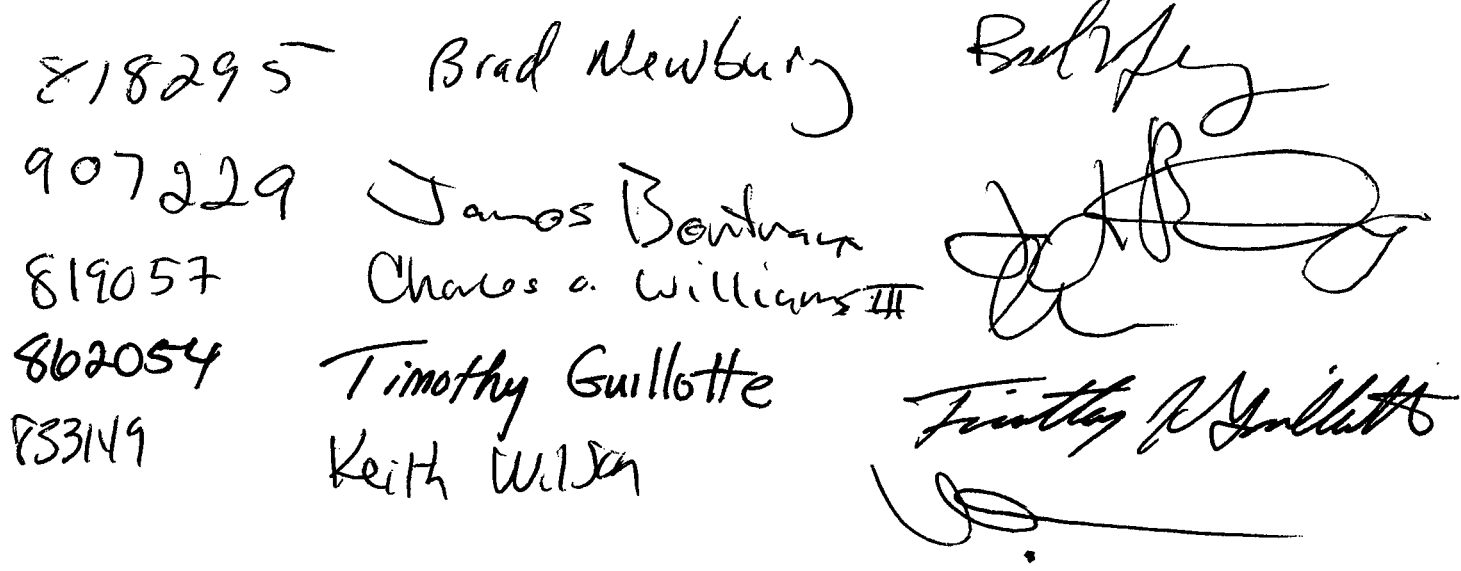 818295 Brad Newbury
907229 James Bontrager
819057 Charles A. Williams III
862054 Timothy Guillotte Timothy R Guillotte
833149 Keith Wilson